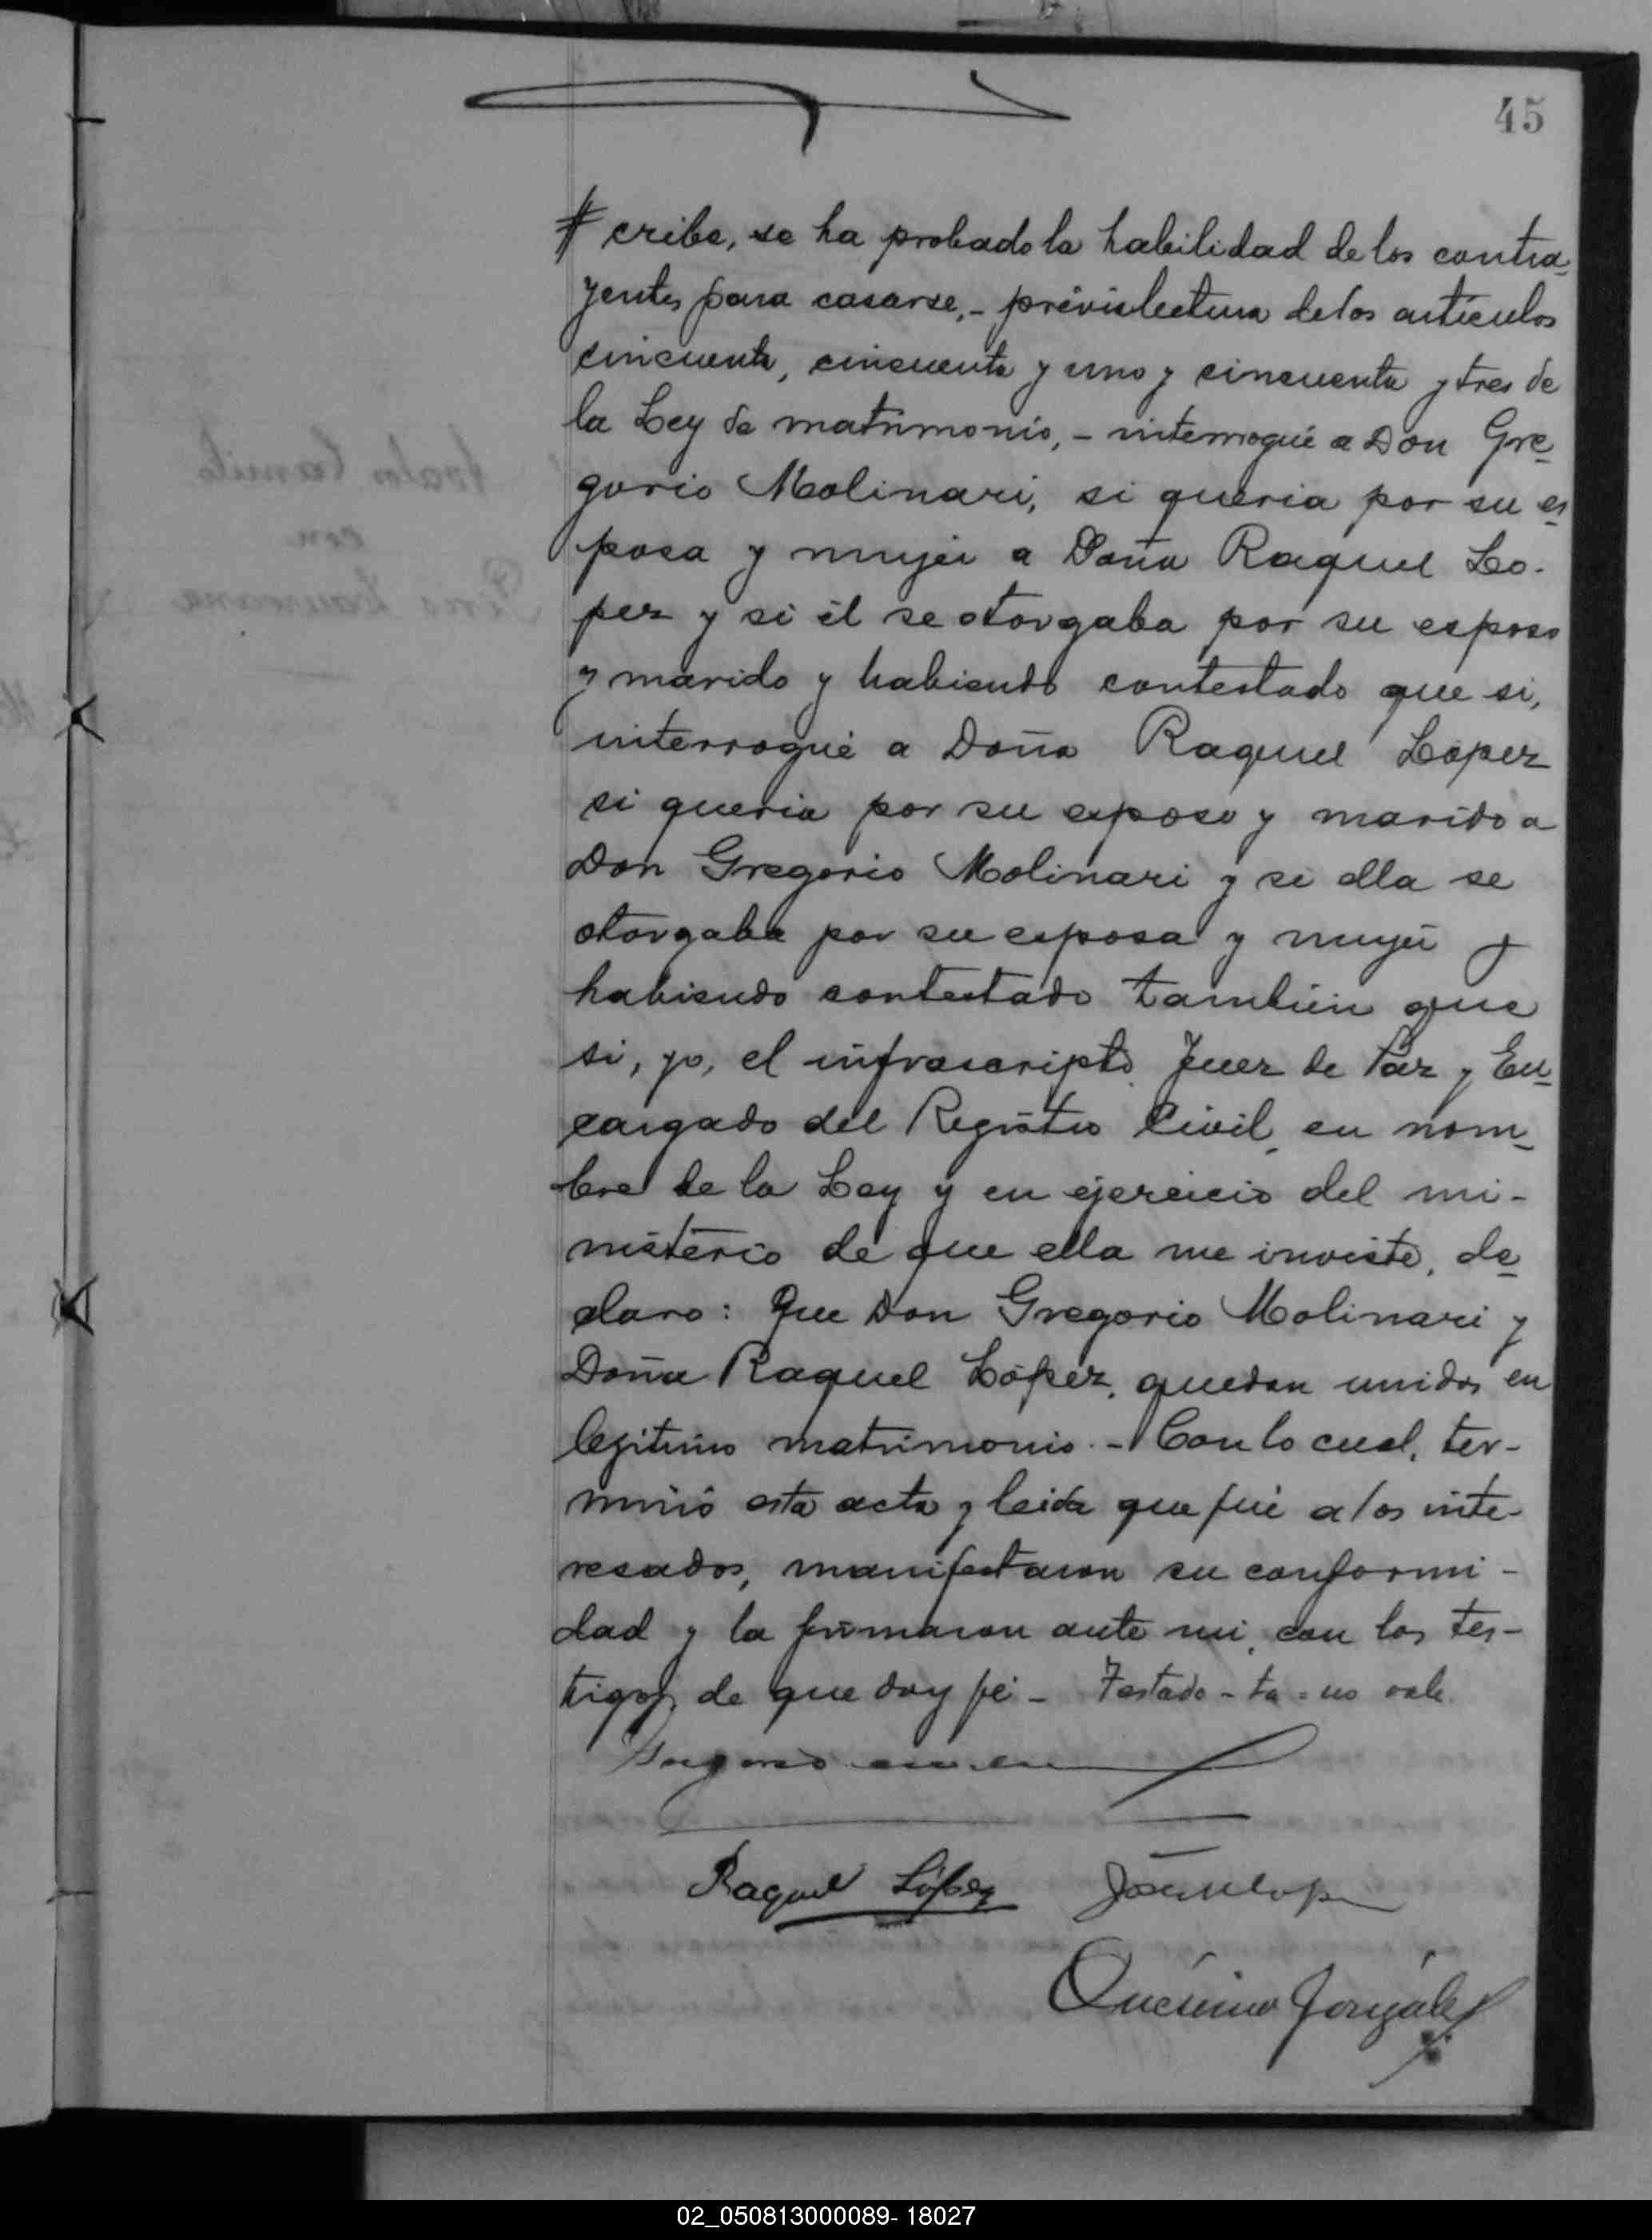 45
cribe, se ha probado la habilidad de los contra-
yentes para casarse,- prévia lectura de los artículos
cincuenta, cincuenta y uno y cincuenta y tres de
la Ley de matrimonio,- interrogué a Don Gre-
gorio Molinari, si queria por su es-
posa y mujer a Doña Raquel Lo-
pez y si él se otorgaba por su esposo
y marido y habiendo contestado que si,
interrogué a Doña Raquel López
si queria por su esposo y marido a
Don Gregorio Molinari y si ella se
otorgaba por su esposa y mujer y
habiendo contestado también que
si, yo, el infrascripto Juez de Paz y En-
cargado del Registro Civil, en nom-
bre de la Ley y en ejercicio del mi-
nisterio de que ella me inviste, de-
claro: Que Don Gregorio Molinari y
Doña Raquel López, quedan unidos en
legitimo matrimonio.- Con lo cual, ter-
minó esta acta y leida que fué a los inte-
resados, manifestaron su conformi-
dad y la firmaron ante mi, con los tes-
tigos, de que doy fé - Testado - ta = no vale.
Raquel López
González
02_050813000089- 18027